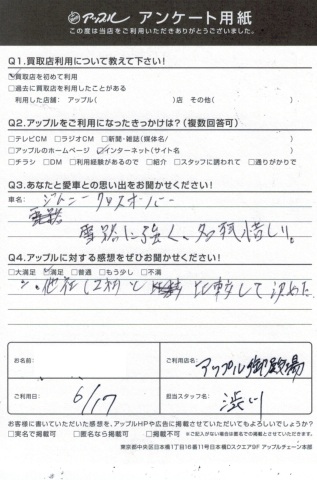 アップル アンケート用紙
この度は当店をご利用いただきありがとうございました。
Q1.買取店利用について教えて下さい!
☑買取を初めて利用
□過去に買取を利用したことがある
利用した店舗: アップル( )店 その他( )
Q2.アップルをご利用になったきっかけは?(複数回答可)
□テレビCM □ラジオCM □新聞・雑誌(媒体名/ )
□アップルのホームページ ☑インターネット(サイト名 )
□チラシ □DM □利用経験があるので □紹介 □スタッフに誘われて □通りがかりで
Q3.あなたと愛車との思い出をお聞かせください!
車名: クロスオーバー
雪路に強く、名残惜しい。
Q4.アップルに対する感想をぜひお聞かせください!
□大満足 ☑満足 □普通 □もう少し □不満
他社(2社)と比較して決めた
お名前:
ご利用店名: アップル御殿場
ご利用日: 6/17
担当スタッフ名: 渋川
お客様に書いていただいた感想を、アップルHPや広告に掲載させていただいてもよろしいでしょうか?
□実名で掲載可 □匿名なら掲載可 □掲載不可 ※ご記入がない場合は匿名での掲載とさせていただきます。
東京都中央区日本橋1丁目16番11号日本橋DスクエアBF アップルチェーン本部